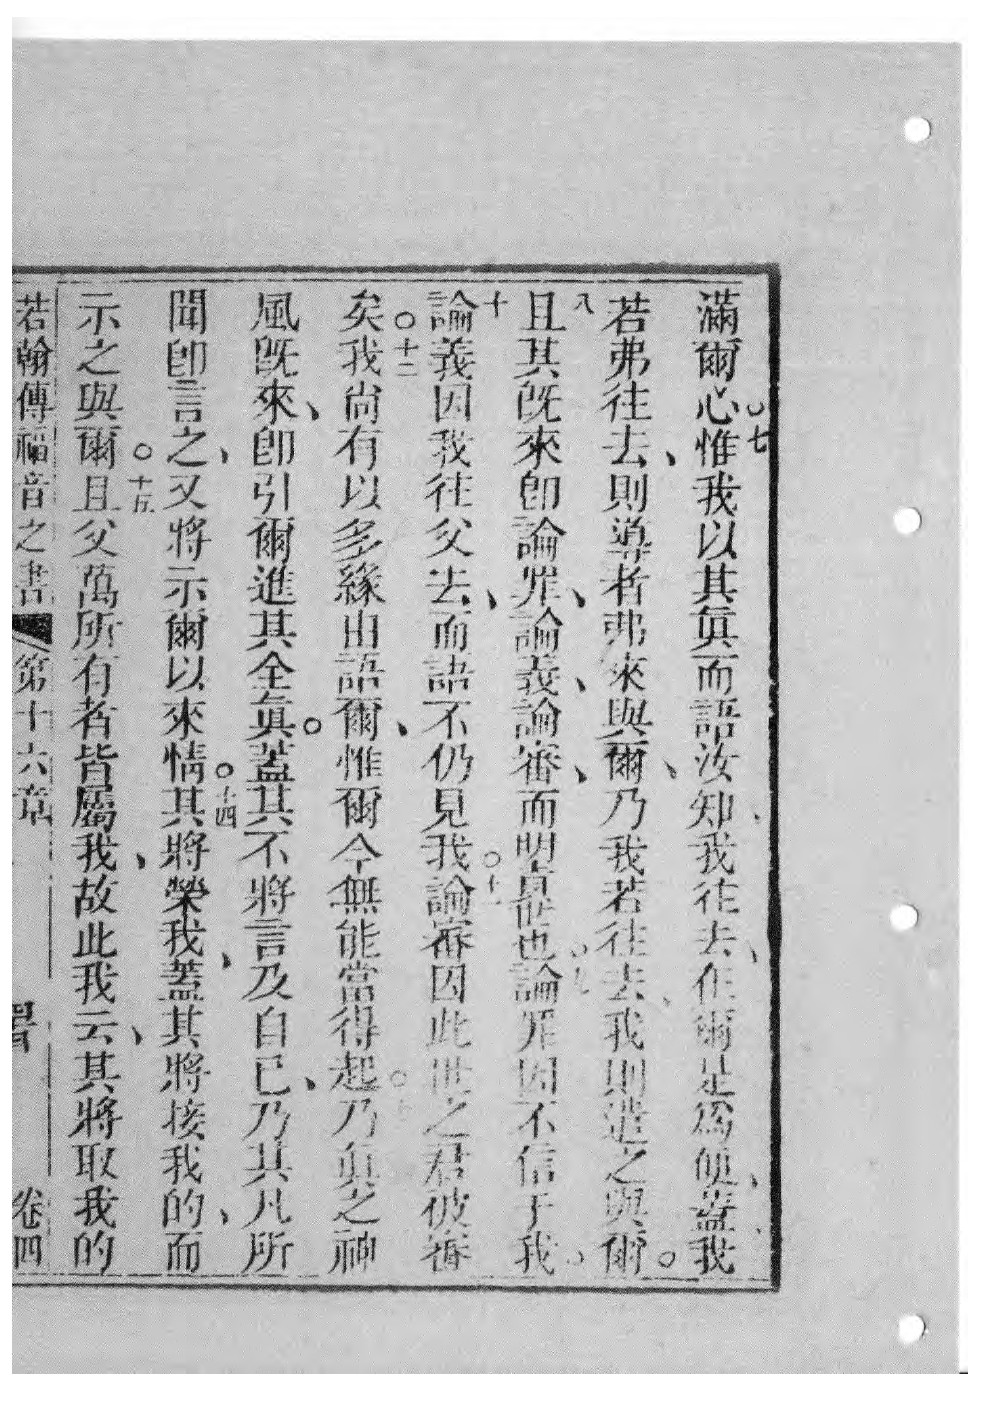 滿爾心。七惟我以其眞而語汝知、我徃去、但爾是爲便、葢我
若弗往去、則導者弗來與爾、乃我若往去、我則遣之與爾。
八且其旣來卽論罪、論義、論審、而明責世也。九論罪因不信于我。
十論義因我往父去、而語不仍見我。十一論審因此世之君彼審
矣。十二我尙有以多緣由語爾、惟爾今無能當得起。乃眞之神
風旣來、卽引爾進其全眞。蓋其不將言及自已、乃其凡所
聞卽言之、又將示爾以來情。十四其將榮我、蓋其將接我的、而
示之與爾。十五且父萬所有者皆屬我、故此我云、其將取我的
若翰傳福音之書 第十六章 卷四